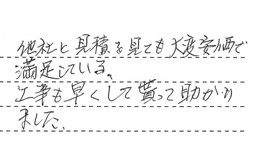 他社と見積を見ても大変安価で
満足している。
工事も早くして貰って助かり
ました。